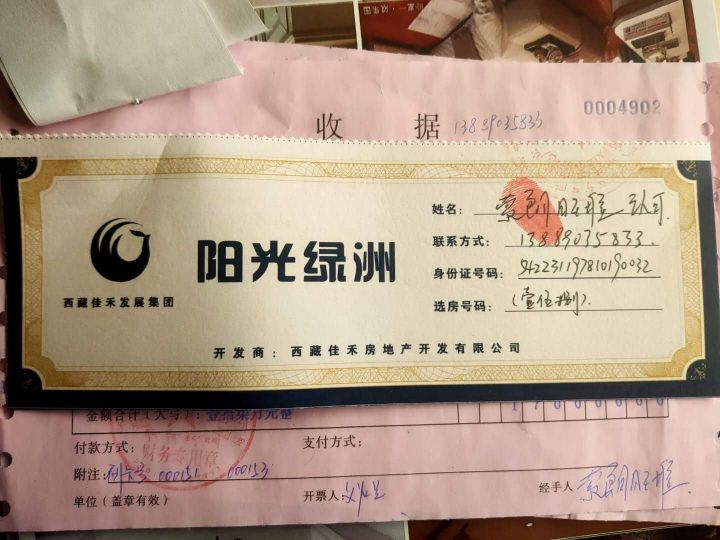 卧室一 · 效果图
0004902
收 据 13889035833
姓名：
联系方式： 13889035833.
身份证号码： 542231197810190032
选房号码： (壹伍捌).
阳光绿洲
西藏佳禾发展集团
开发商：西藏佳禾房地产开发有限公司
金额合计（大写）：壹拾柒万元整
付款方式： 支付方式：
财务专用章
附注： 000151 000153
单位（盖章有效） 开票人 经手人